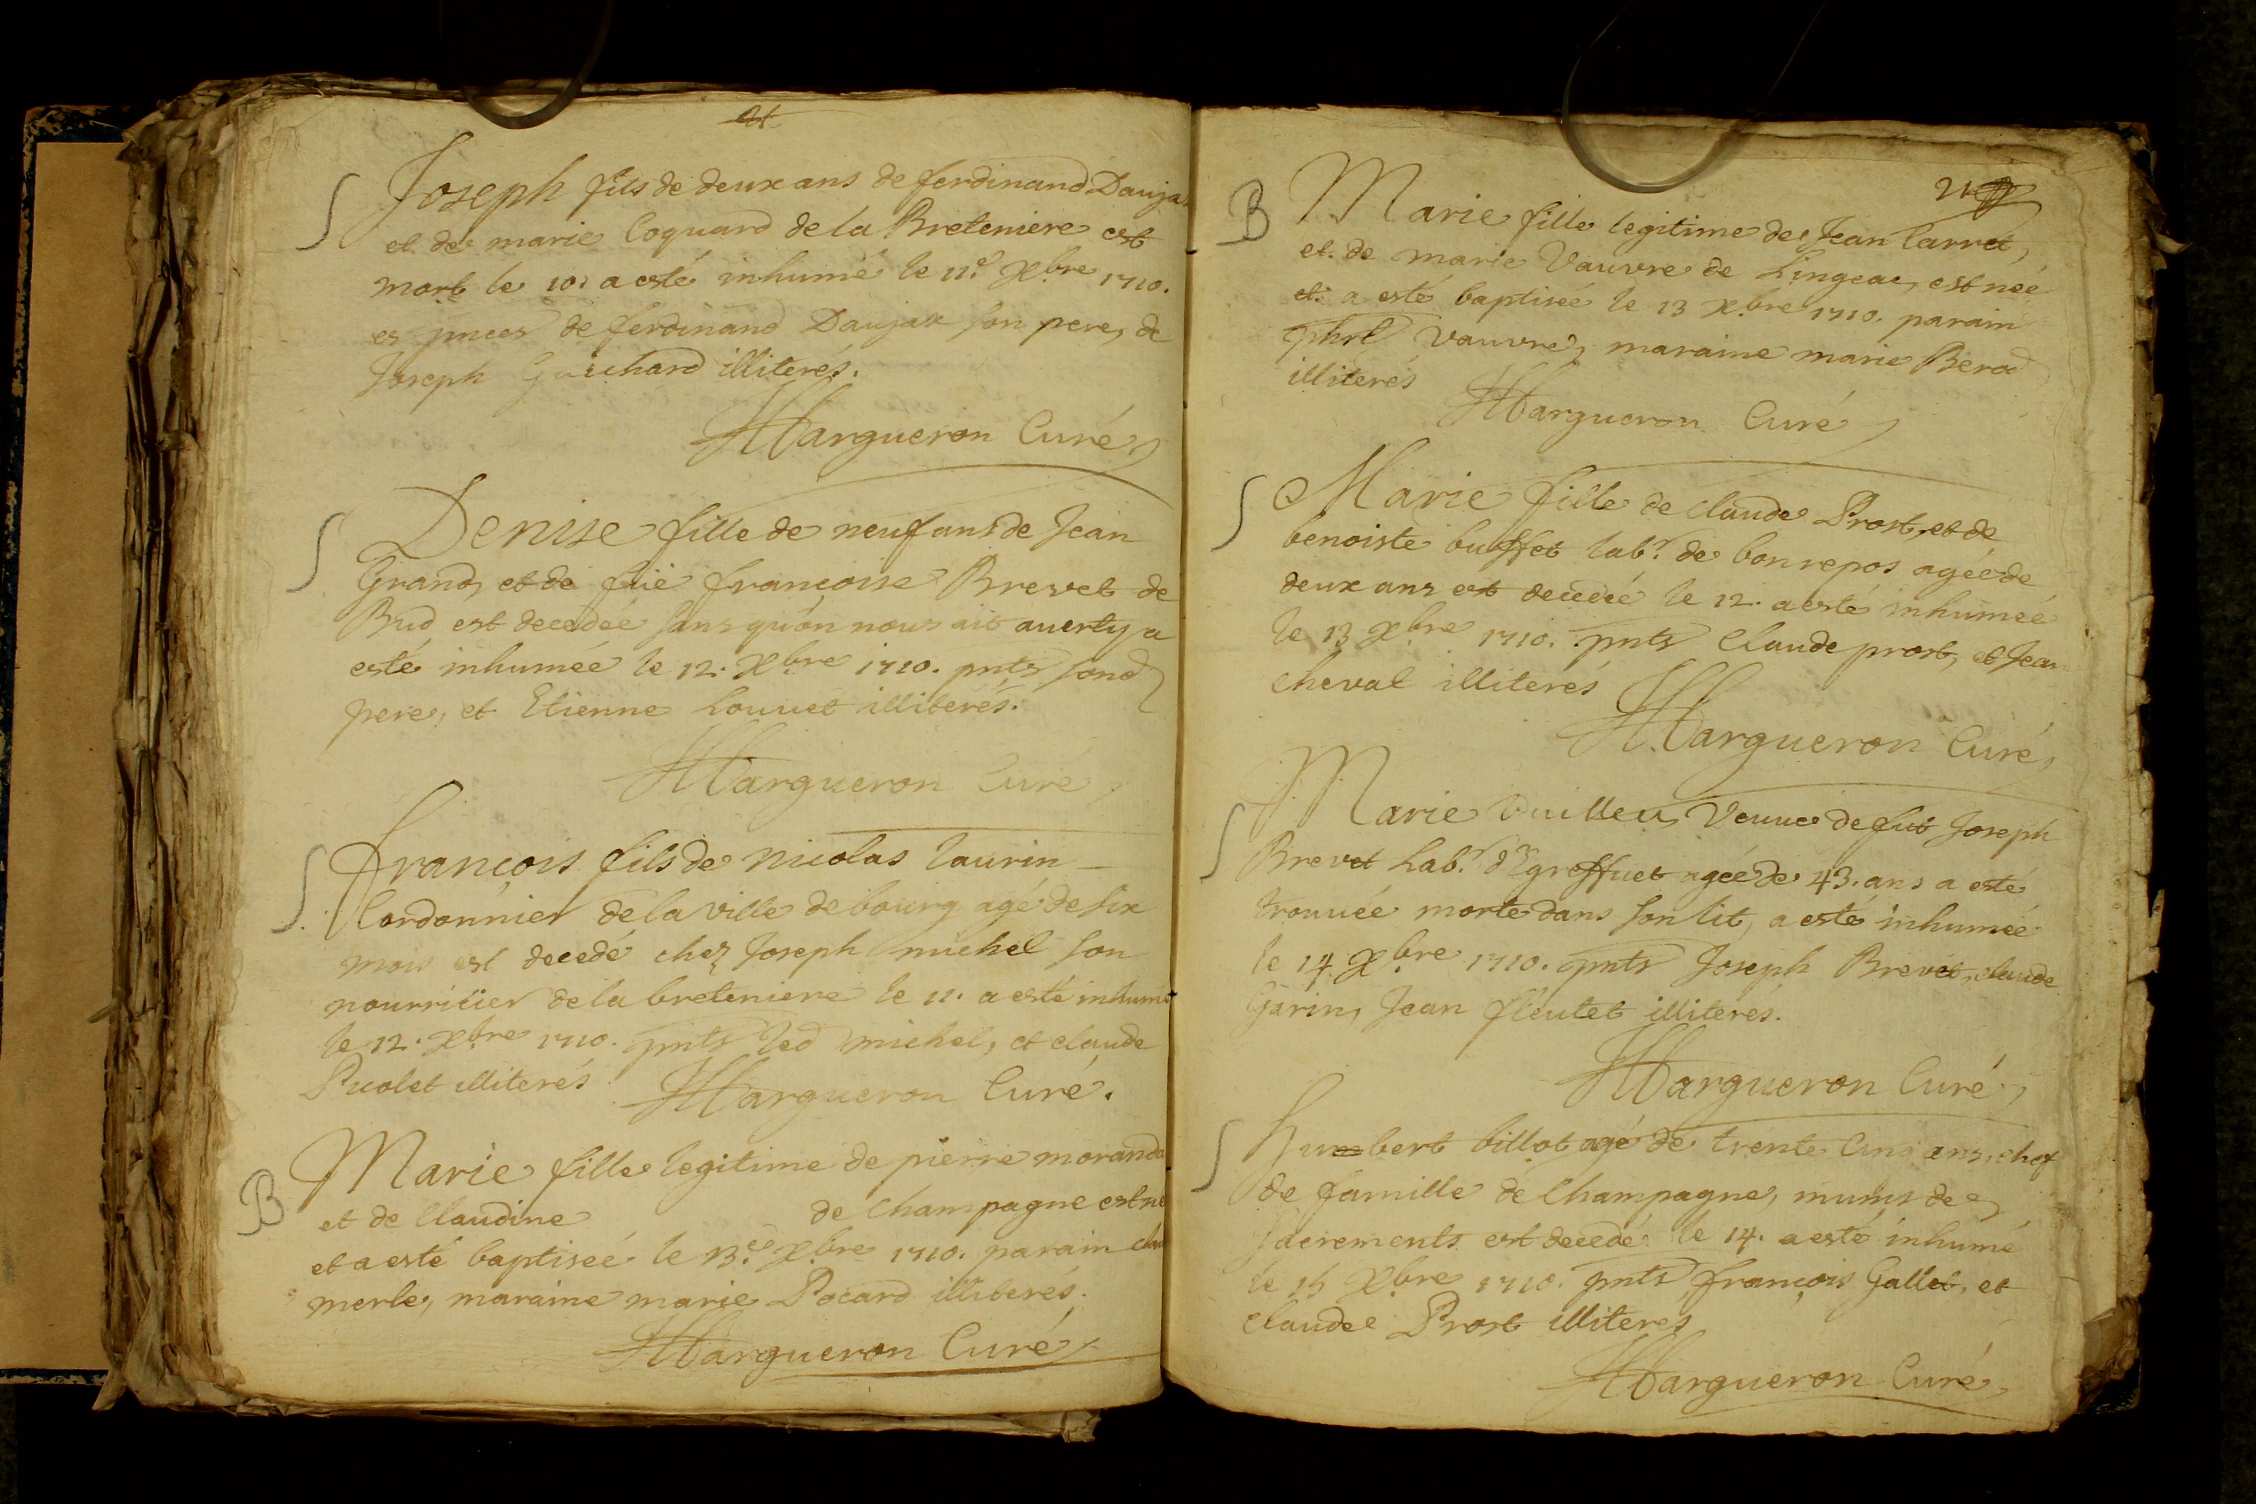 S Joseph fils de deux ans de ferdinand Daujat
et de marie Coquard de la Breteniere est
mort le 10. a esté inhumé le 11.e Xbre 1710.
es pnces de ferdinand Daujat son pere, de
Joseph Guichard illiterés.
Margueron Curé
S Denise fille de neuf ans de Jean
Grand, et de füe françoise Brevet de
Bud est decedée sans qu'on nous ait auerty a
esté inhumée le 12. Xbre 1710. pnts sond
pere, et Etienne Louuet illiterés.
Margueron Curé
S François fils de Nicolas Laurin
Cordonnier de la ville de bourg agé de six
mois est decedé chez Joseph michel son
nourricier de la breteniere le 11. a esté inhumé
le 12. Xbre 1710. pnts led michel, et claude
Picolet illiterés Margueron Curé.
B Marie fille legitime de pierre morand
et de Claudine de Champagne est né
et a esté baptiseé le 13.e Xbre 1710. parain
merle, maraine marie Pocard illiterés.
Margueron Curé
21
B Marie fille legitime de Jean Carret,
et de marie Vauvre de Lingeat, est neé
et a esté baptiseé le 13 Xbre 1710. parain
Vauvre, maraine marie Berod
illiterés Margueron Curé
S Marie fille de claude Prost, et de
benoiste buffet labr. de bon repos agéé de
deux ans est decedé le 12. a esté inhumeé
le 13 Xbre 1710. pnts Claude prost, et Jean
cheval illiterés
Margueron Curé
S Marie Vuilleu Veuue de fut Joseph
Brevet Labr. de greffuet agéé de 43. ans a esté
trouuée morte dans son lit, a esté inhumeé
le 14. Xbre 1710. pnts Joseph Brevet, claude
Garin, Jean fleutet illiterés.
Margueron Curé
S Humbert billot agé de trente Cinq ans, chef
de famille de Champagne, munis de
sacrements est decedé le 14. a esté inhumé
le 15 Xbre 1710. pnts françois Gallet, et
Claude Prost illiteres
Margueron Curé